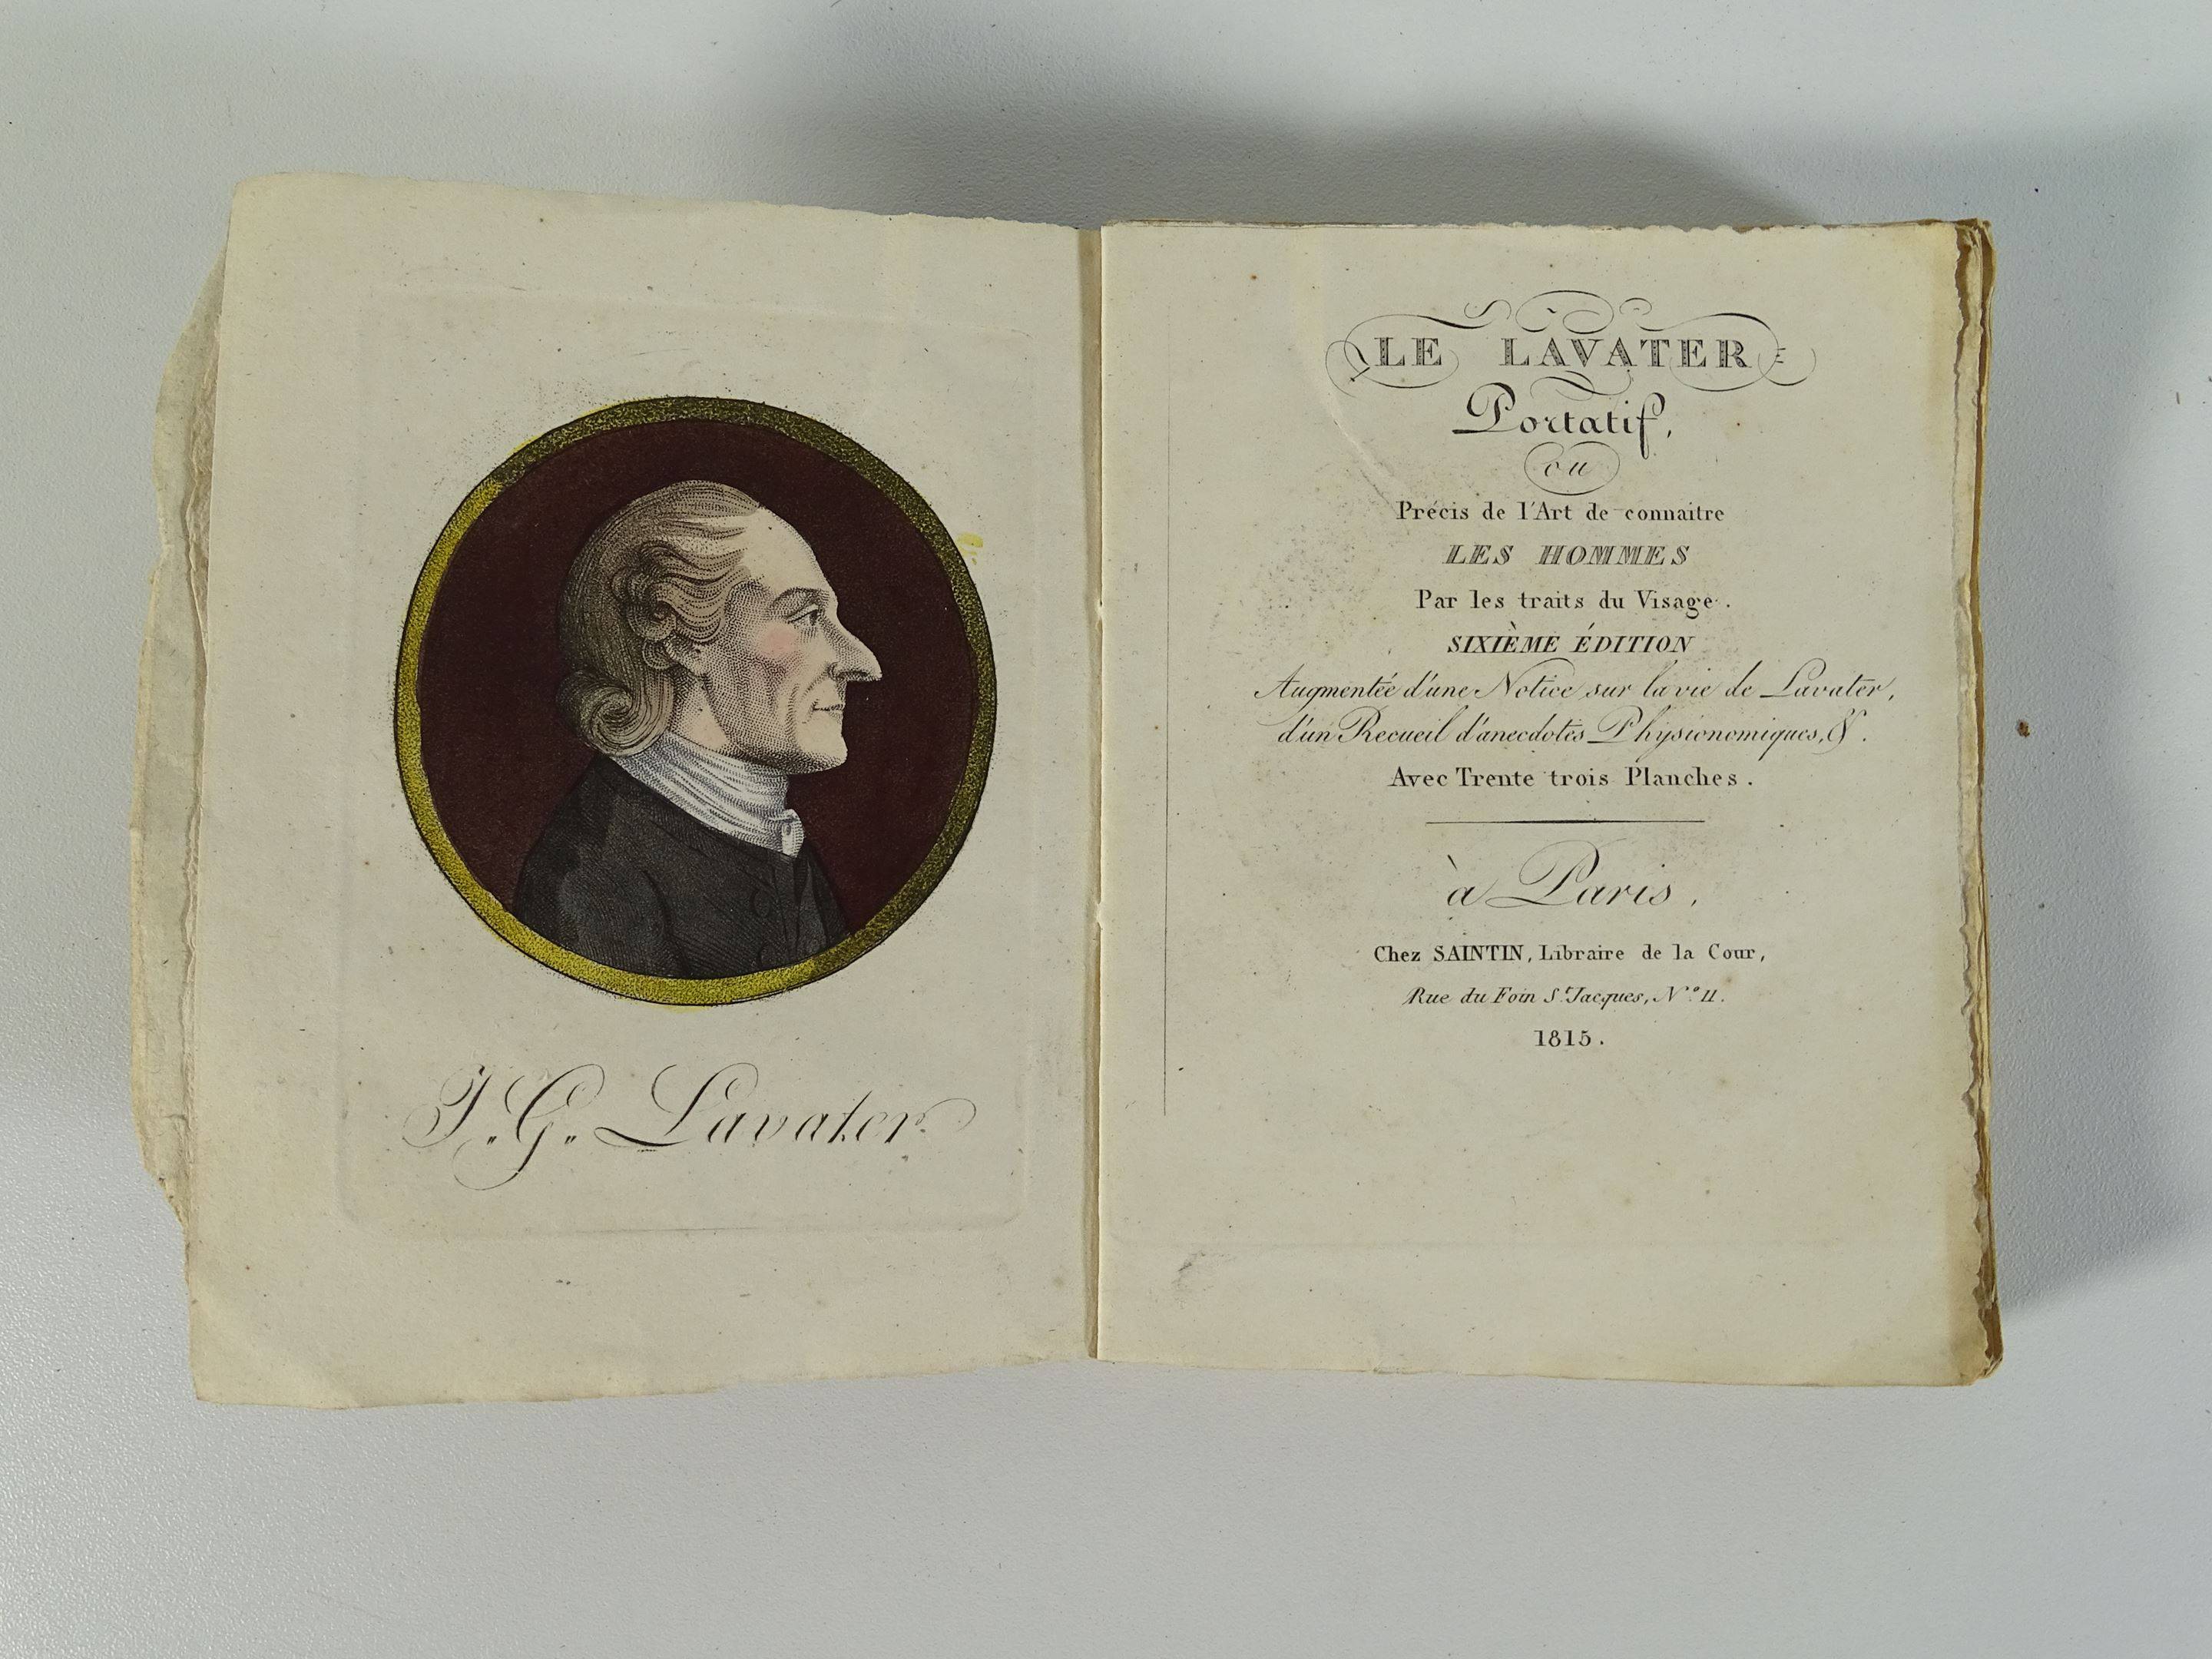 J. G. Lavater.
LE LAVATER
Portatif,
ou
Précis de l'Art de connaitre
LES HOMMES
Par les traits du Visage.
SIXIÈME ÉDITION
Augmentée d'une Notice sur la vie de Lavater,
d'un Recueil d'anecdotes Physionomiques, &.
Avec Trente trois Planches.
à Paris,
Chez SAINTIN, Libraire de la Cour,
Rue du Foin St. Jacques, N.º 11.
1815.